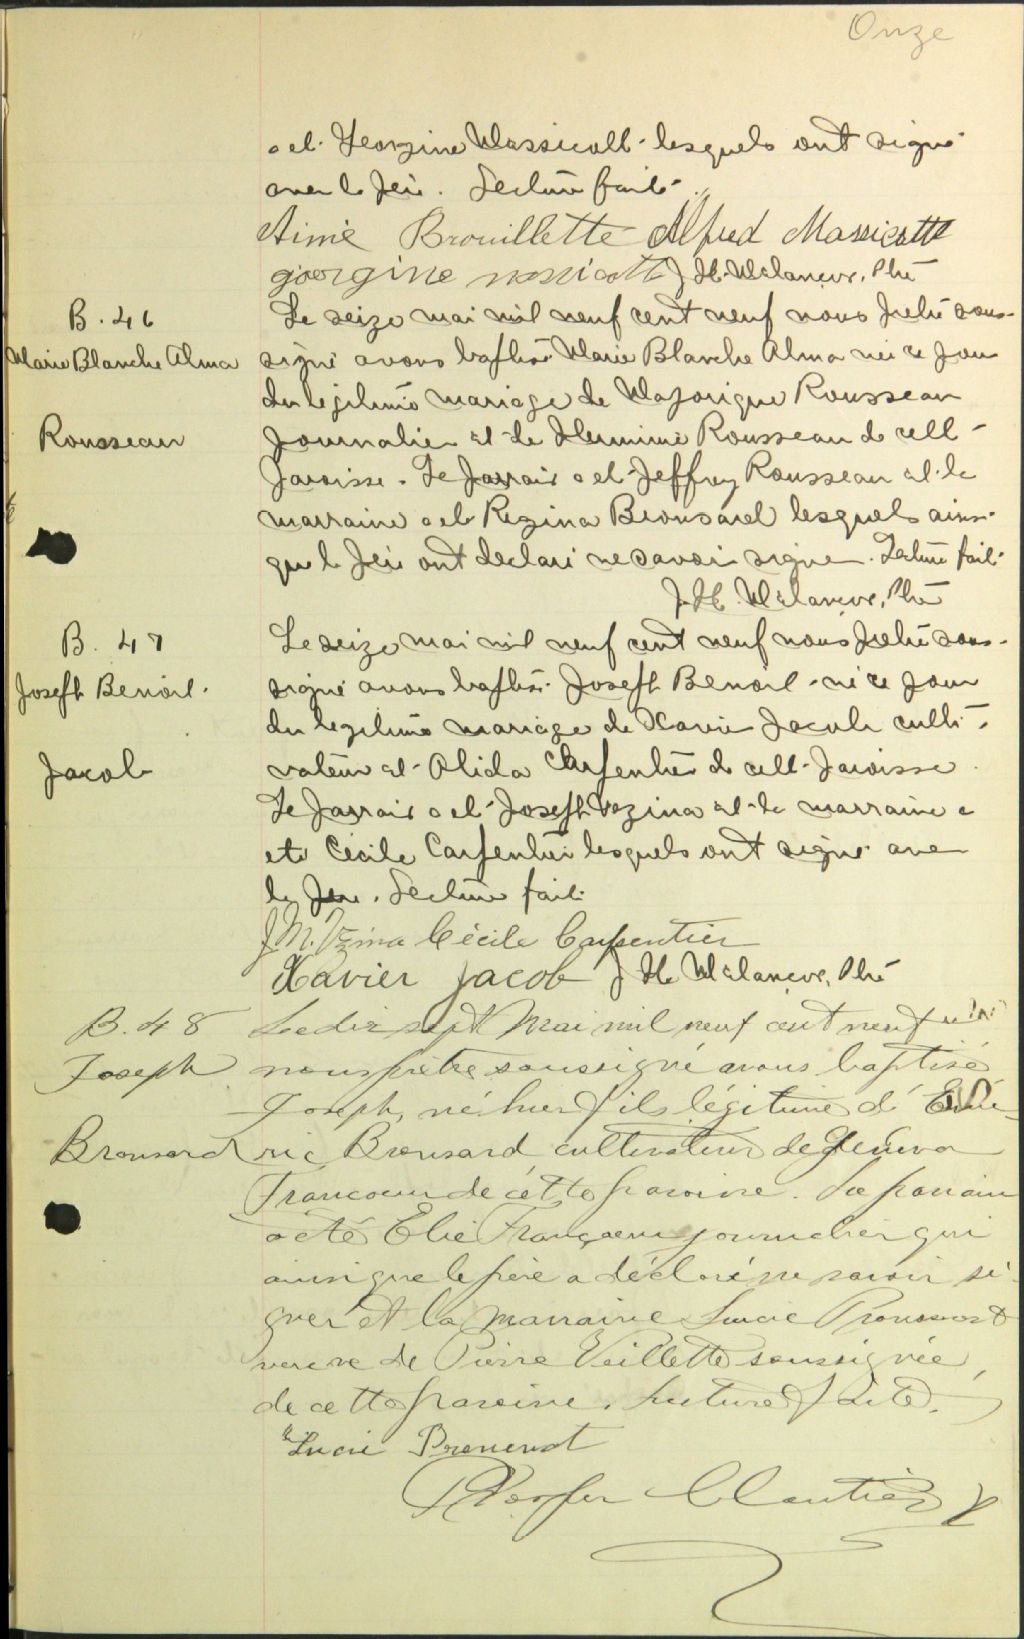 Onze
a été Georgine Massicotte lesquels ont signé
avec le père. Lecture faite.
Aimé Brouillette Alfred Massicotte
goorgine massicotte J. H. Melançon, Ptre
B. 46
Marie Blanche Alma
Rousseau
Le seize mai mil neuf cent neuf nous prêtre sous-
signé avons baptisé Marie Blanche Alma née ce jour
du légitime mariage de Majorique Rousseau
journalier et de Hermine Rousseau de cette
paroisse. Le parrain a été Jeffrey Rousseau et la
marraine a été Regina Brousard lesquels ainsi
que le père ont déclaré ne savoir signer. Lecture faite.
J. H. Melançon, Ptre
B. 47
Joseph Benoit
Jacob
Le seize mai mil neuf cent neuf nous prêtre sous-
signé avons baptisé Joseph Benoit né ce jour
du légitime mariage de Xavier Jacob culti-
vateur et Alida Carpentier de cette paroisse.
Le parrain a été Joseph Vezina et la marraine a
été Cécile Carpentier lesquels ont signé avec
le père. Lecture faite
J M. Vézina Cécile Carpentier
Xavier Jacob J H. Melançon, Ptre
B. 48
Joseph
Brousard
Le dix sept Mai mil neuf cent neuf
nous prêtre soussigné avons baptisé
Joseph, né hier fils légitime d'Émé-
ric Brousard cultivateur de Géneva
Francoeur de cette paroisse. Le parrain
a été Elie Francoeur journalier qui
ainsi que le père a déclaré ne savoir si-
gner et la marraine Lucie Pronovost
veuve de Pierre Veillette soussignée
de cette paroisse. Lecture faite.
Lucie Pronovost
Prosper Cloutier